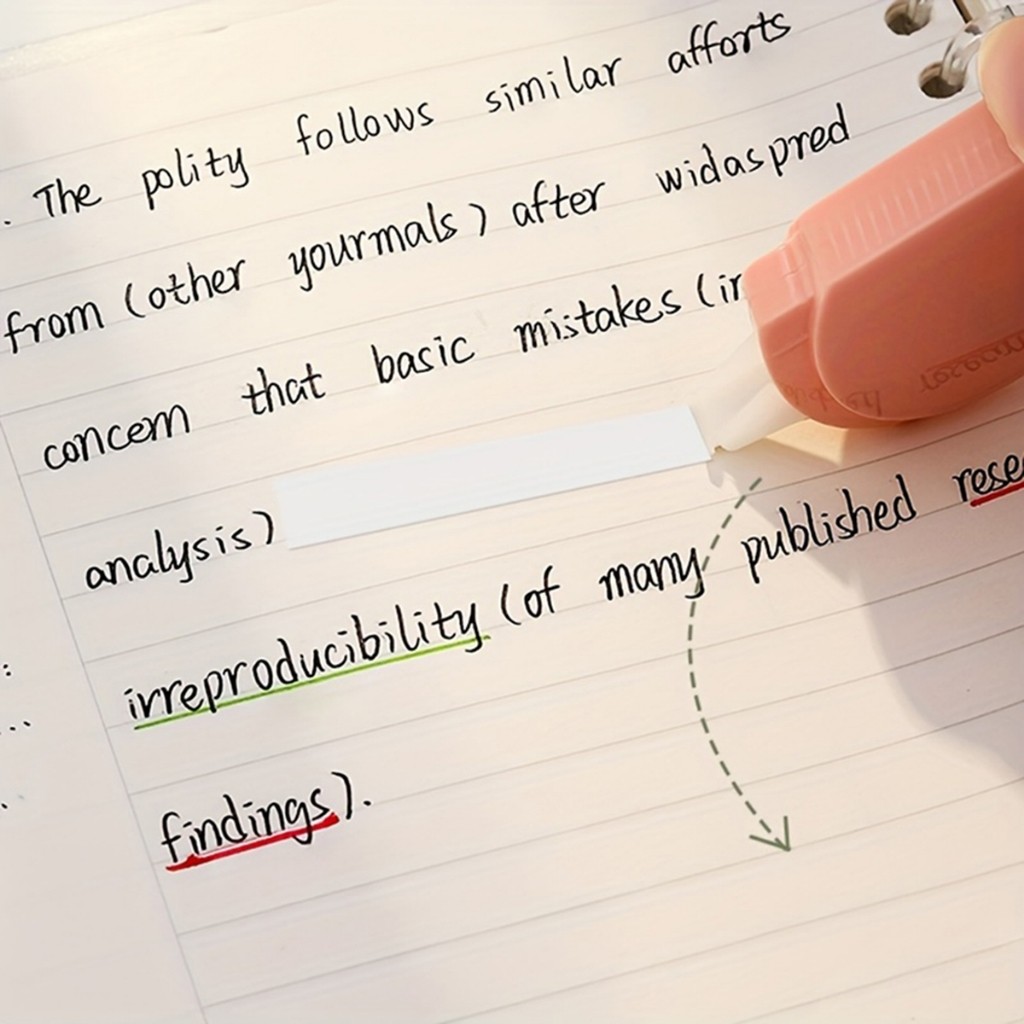 . The polity follows similar afforts
from (other yourmals) after widaspred
concem that basic mistakes (in
analysis)
irreproducibility (of many published rese
findings).